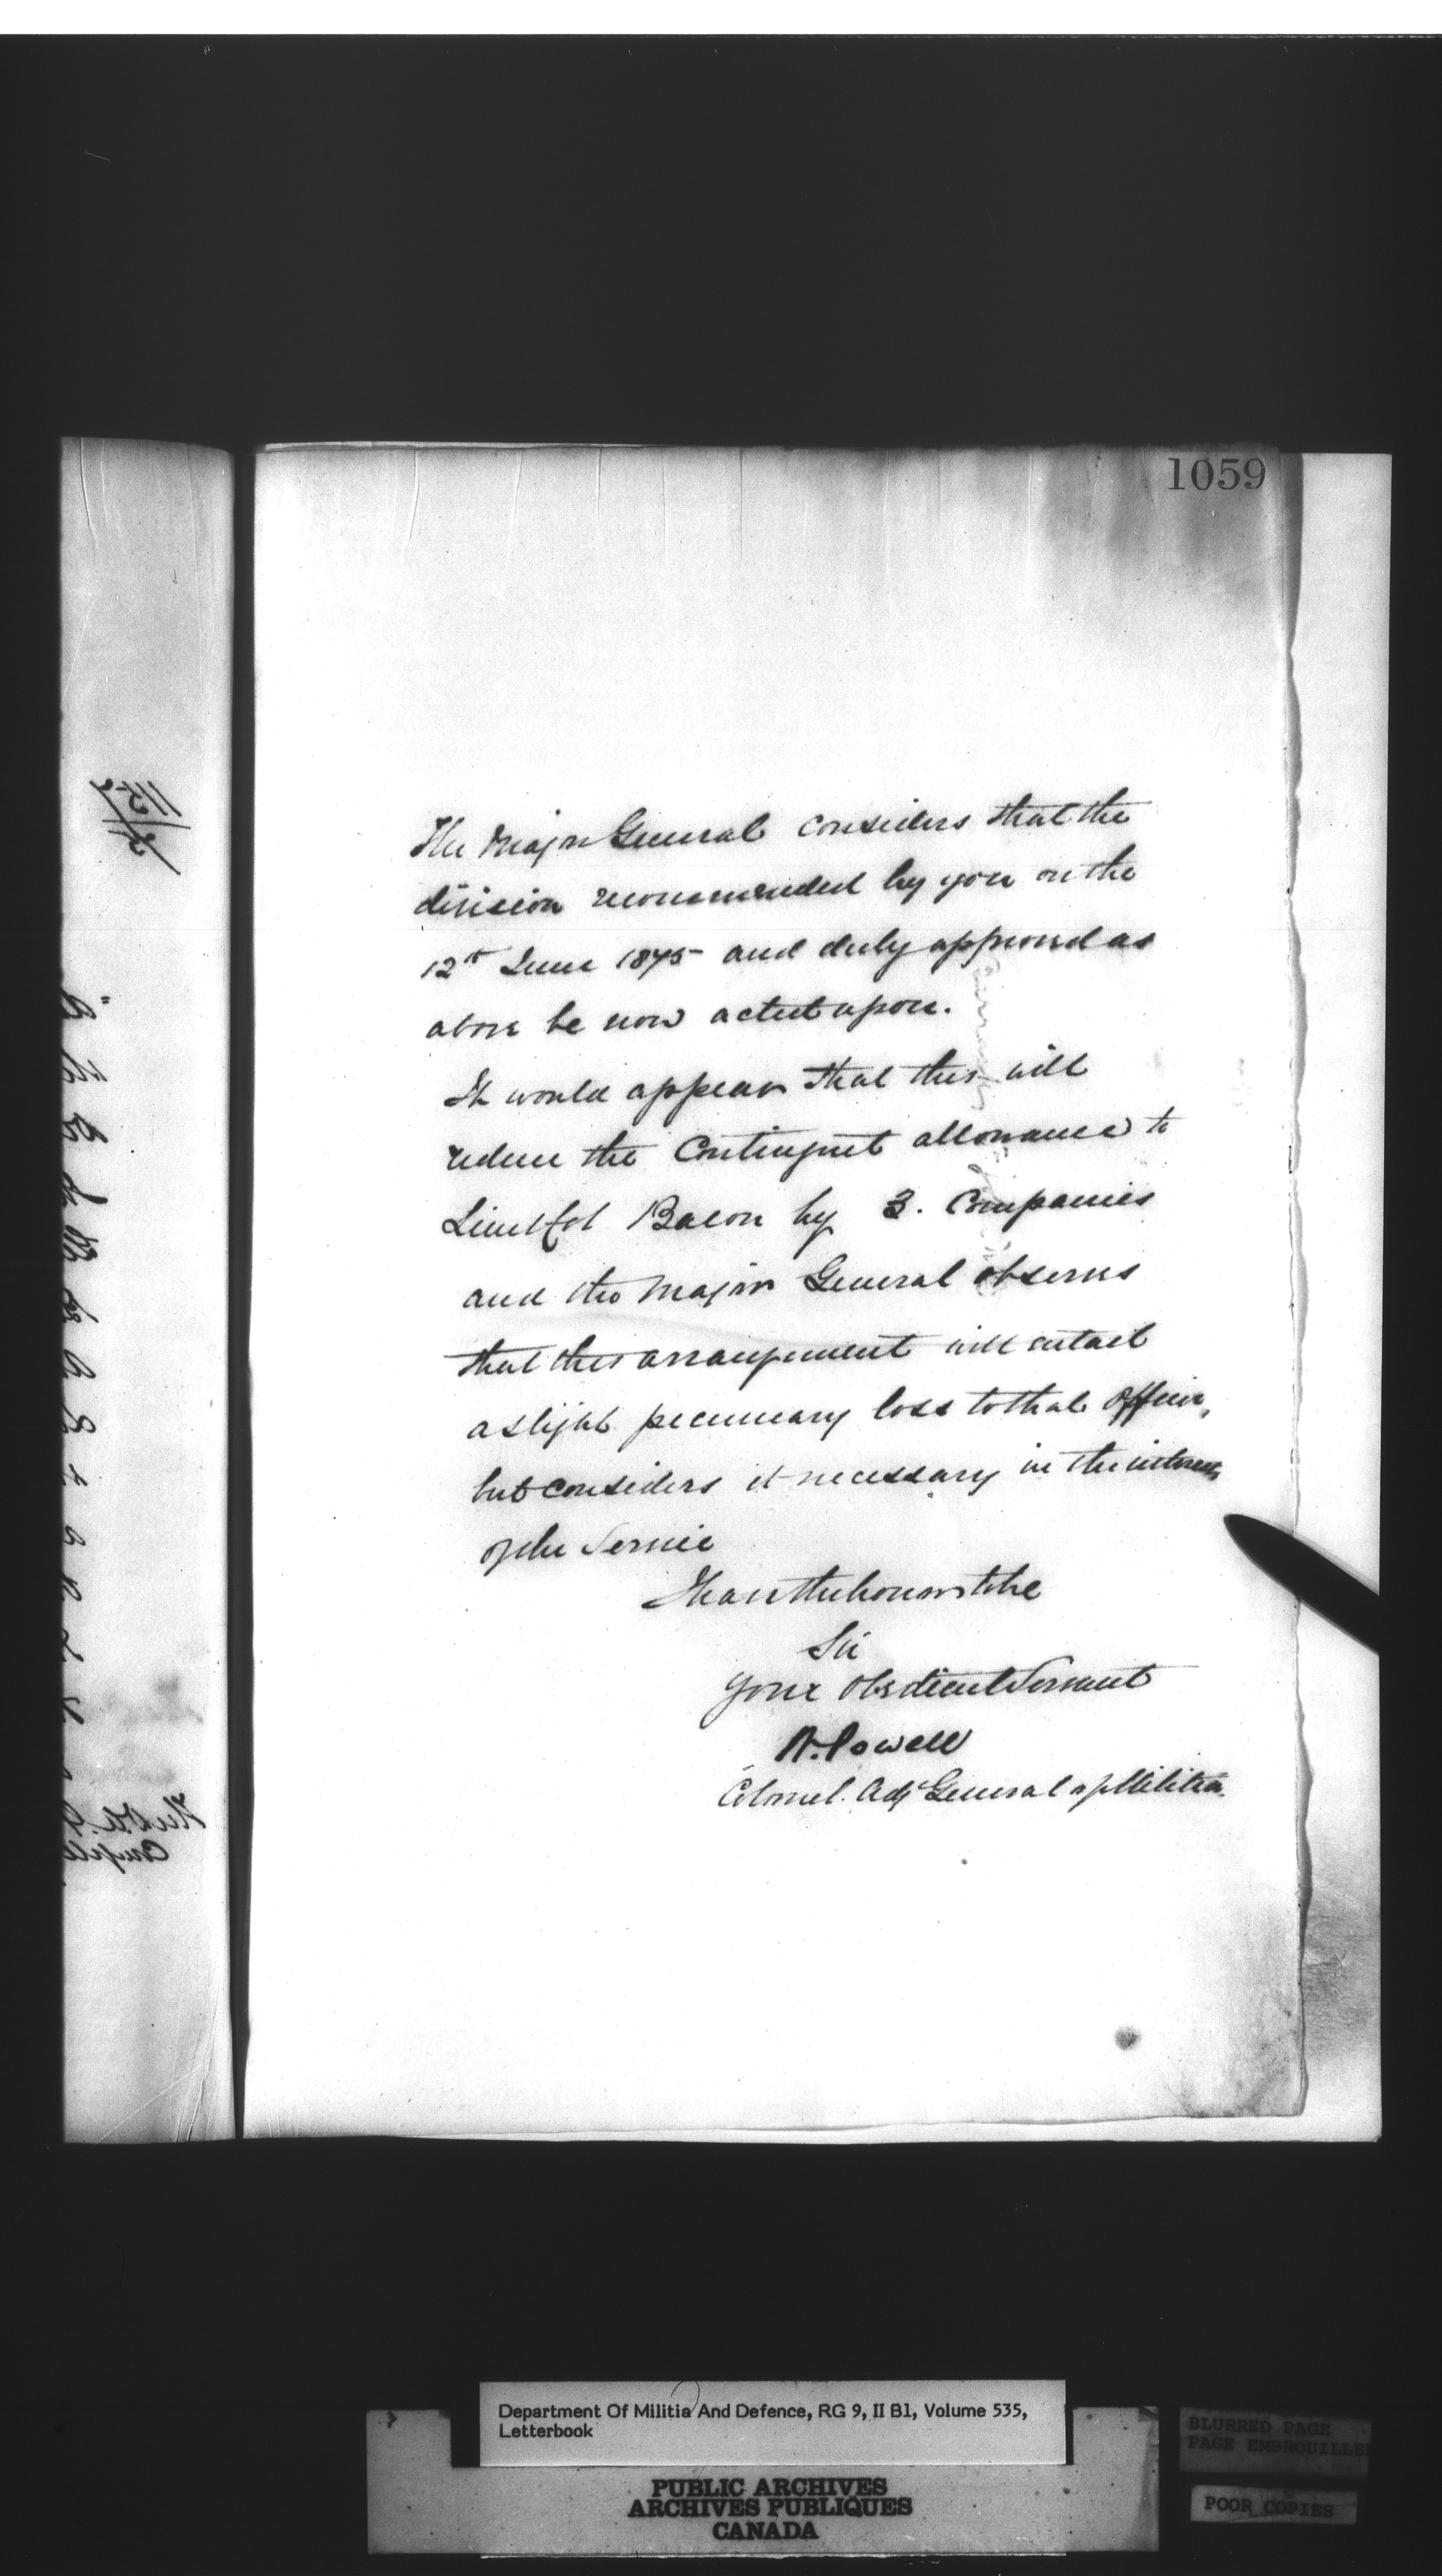 1059
The Major General considers that the
division recommended by you on the
12th June 1875 and duly approved as
above be now acted upon.
It would appear that this will
reduce the Contingent allowance to
Lieut Col Bacon by 3. Companies
and the Major General observes
that this arrangement will entail
a slight pecuniary loss to that Officer,
but considers it necessary in the interests
of the Service
I have the honor to be
Sir
Your Obedient Servant
W. Powell
Colonel. Adj General of Militia.
Department Of Militia And Defence, RG 9, II B1, Volume 535,
Letterbook
PUBLIC ARCHIVES
ARCHIVES PUBLIQUES
CANADA
BLURRED PAGE
PAGE EMBROUILLEE
POOR COPIES